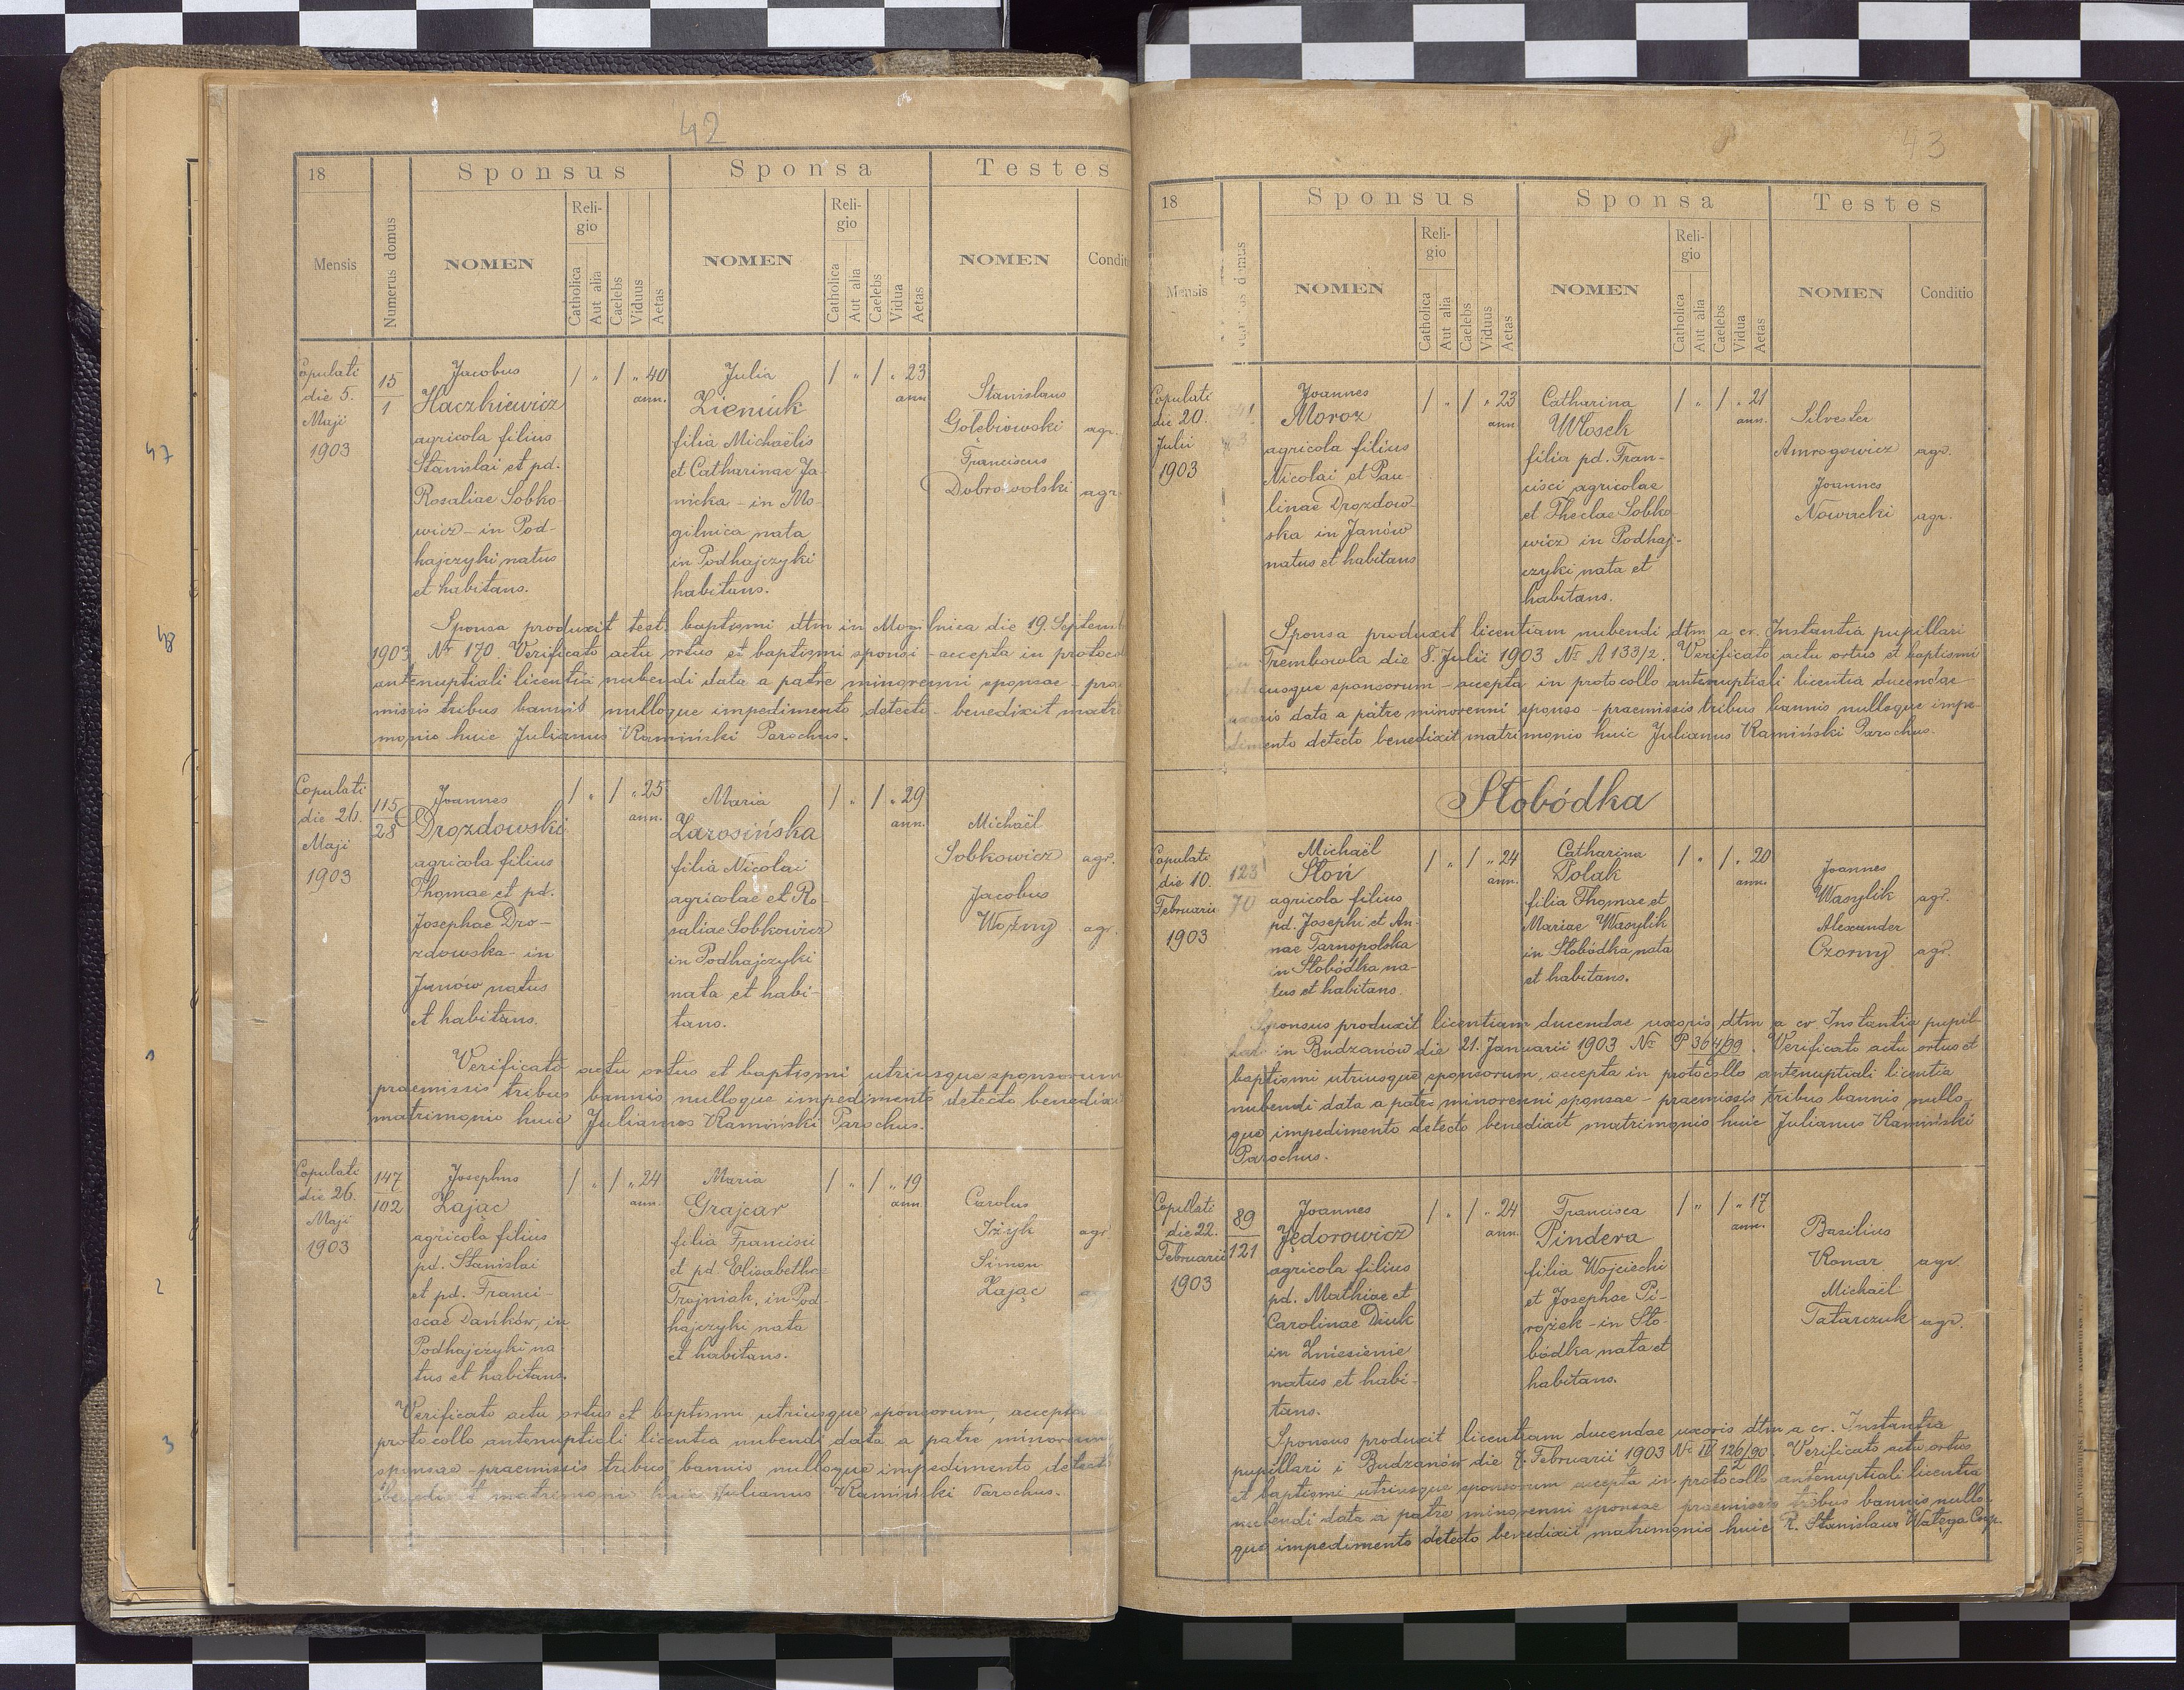 42
18
Sponsus
Sponsa
Testes
Mensis
Numerus domus
NOMEN
Religio
Catholica
Aut alia
Caelebs
Viduus
Aetas
NOMEN
Religio
Catholica
Aut alia
Caelebs
Vidua
Aetas
NOMEN
Condit
Copulati
die 5.
Maji
1903
15
1
Jacobus
Haczkiewicz
agricola filius
Stanislai et pd.
Rosaliae Sobko-
wicz - in Pod-
hajczyki natus
et habitans.
/ " / " 40
ann.
Julia
Zieniuk
filia Michaëlis
et Catharinae Ja-
nicka - in Mo-
gilnica nata
in Podhajczyki
habitans.
/ " / " 23
ann
Stanislaus
Gołębiowski agr.
Franciscus
Dobrowolski agr.
Sponsa produxit test. baptismi dtm in Mogilnica die 19. Septemb
1903 Nr 170. Verificato actu ortus et baptismi sponsi - accepta in protoco
antenuptiali licentia nubendi data a patre minorenni sponsae - prae
missis tribus bannis nulloque impedimento detecto - benedixit matri
monio huic Julianus Kamiński Parochus.
Copulati
die 26.
Maji
1903
115
28
Joannes
Drozdowski
agricola filius
Thomae et pd.
Josephae Dro-
zdowska - in
Janów natus
et habitans.
/ " / " 25
ann.
Maria
Zarosińska
filia Nicolai
agricolae et Ro-
saliae Sobkowicz
in Podhajczyki
nata et habi-
tans.
/ " / " 29
ann.
Michaël
Sobkowicz agr.
Jacobus
Woźny agr.
Verificato actu ortus et baptismi utriusque sponsorum
praemissis tribus bannis nulloque impedimento detecto benedixi
matrimonio huic Julianus Kamiński Parochus.
Copulati
die 26.
Maji
1903
147
102
Josephus
Zając
agricola filius
pd. Stanislai
et pd. Franci-
scae Dańków, in
Podhajczyki na-
tus et habitans.
/ " / " 24
ann.
Maria
Grajcar
filia Francisci
et pd. Elisabethae
Trojniak, in Pod-
hajczyki nata
et habitans.
/ " / " 19
ann
Carolus
Iżyk agr
Simon
Zając
Verificato actu ortus et baptismi utriusque sponsorum, accepta
protocollo antenuptiali licentia nubendi data a patre minorenni
sponsae - praemissis tribus bannis nulloque impedimento detecto
benedixit matrimonio huic Julianus Kamiński Parochus.
43
18
Sponsus
Sponsa
Testes
Mensis
NOMEN
Religio
Catholica
Aut alia
Caelebs
Viduus
Aetas
NOMEN
Religio
Catholica
Aut alia
Caelebs
Vidua
Aetas
NOMEN
Conditio
Copulati
die 20.
Julii
1903
Joannes
Moroz
agricola filius
Nicolai et Pau-
linae Drozdow-
ska in Janów
natus et habitans
/ " / " 23
ann
Catharina
Włosek
filia pd. Fran-
cisci agricolae
et Theclae Sobko-
wicz in Podhaj-
czyki nata et
habitans.
/ " / " 21
ann.
Silvester
Amrogowicz agr.
Joannes
Nowacki agr.
Sponsa produxit licentiam nubendi dtm a cr. Instantia pupillari
in Trembowla die 8. Julii 1903 Nr A 133/2. Verificato actu ortus et baptismi
utriusque sponsorum - accepta in protocollo antenuptiali licentia ducendae
uxoris data a patre minorenni sponso - praemissis tribus bannis nulloque impe-
dimento detecto benedixit matrimonio huic Julianus Kamiński Parochus.
Słobódka
Copulati
die 10.
Februarii
1903
123
70
Michaël
Słoń
agricola filius
pd. Josephi et An-
nae Tarnopolska
in Słobódka na-
tus et habitans.
/ " / " 24
ann.
Catharina
Polak
filia Thomae et
Mariae Wasylik
in Słobódka nata
et habitans.
/ " / " 20
ann.
Joannes
Wasylik agr.
Alexander
Czorny agr.
Sponsus produxit licentiam ducendae uxoris dtm a cr. Instantia pupil-
lari in Budzanów die 21. Januarii 1903 Nr P 364/99. Verificato actu ortus et
baptismi utriusque sponsorum, accepta in protocollo antenuptiali licentia
nubendi data a patre minorenni sponsae - praemissis tribus bannis nullo-
que impedimento detecto benedixit matrimonio huic Julianus Kamiński
Parochus.
Copulati
die 22.
Februarii
1903
89
121
Joannes
Jędorowicz
agricola filius
pd. Mathiae et
Carolinae Diuk
in Zniesienie
natus et habi-
tans.
/ " / " 24
ann.
Francisca
Pindera
filia Wojciechi
et Josephae Pi-
rożek - in Sło-
bódka nata et
habitans.
/ " / " 17
ann.
Basilius
Konar agr.
Michaël
Tatarczuk agr.
Sponsus produxit licentiam ducendae uxoris dtm a cr. Instantia
pupillari i Budzanów die 7. Februarii 1903 Nr IV 126/90. Verificato actu ortus
2
et baptismi utriusque sponsorum accepta in protocollo antenuptiali licentia
nubendi data a patre minorenni sponsae praemissis tribus bannis nullo-
que impedimento detecto benedixit matrimonio huic R. Stanislaus Watęga Coop.